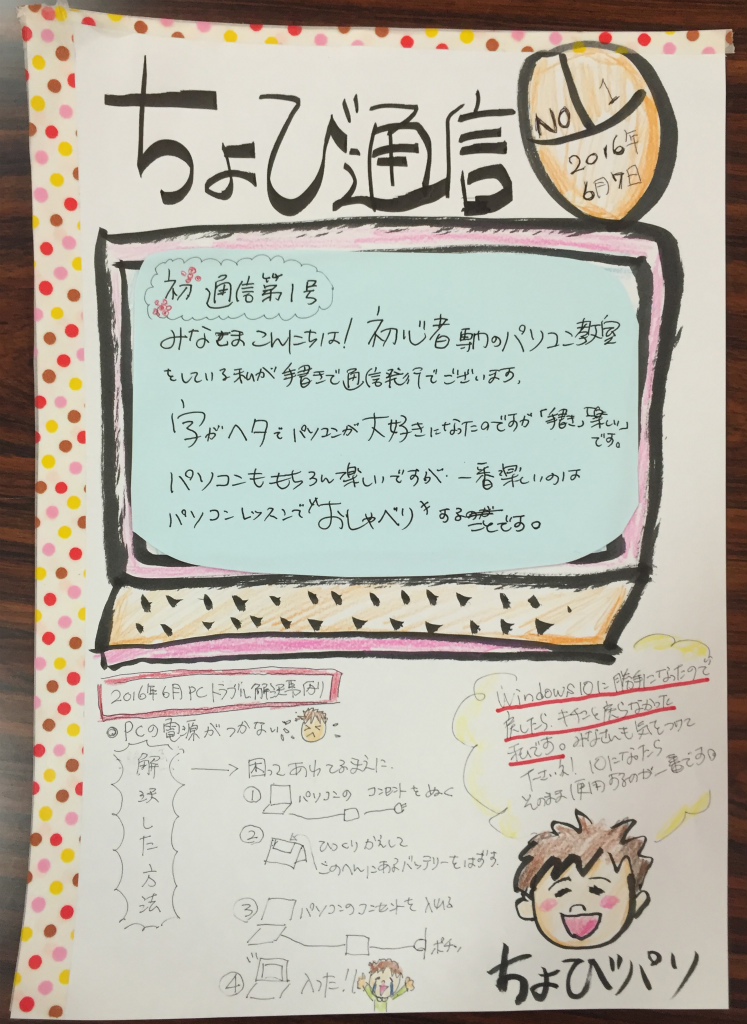 ちょび通信
NO 1
2016年
6月7日
初 通信第1号
みなさまこんにちは! 初心者専門のパソコン教室
をしている私が手書きで通信発行でございます。
字がヘタでパソコンが大好きになったのですが「手書き」「楽しい」
です。
パソコンももちろん楽しいですが、一番楽しいのは
パソコンレッスンで"おしゃべり"する
ことです。
2016年6月PCトラブル解決事例
PCの電源がつかない
解決した方法
→ 困ってあわてるまえに
① パソコンのコンセントをぬく
② ひっくりかえして
このへんにあるバッテリーをはずす。
③ パソコンのコンセントを入れる
ポチッ
④ 入った!!
Windows10に勝手になったので
戻したらキチンと戻らなかった
私です。みなさんも気をつけて
下さいね! 10になったら
そのまま使用するのが一番です。
ちょびッパソ